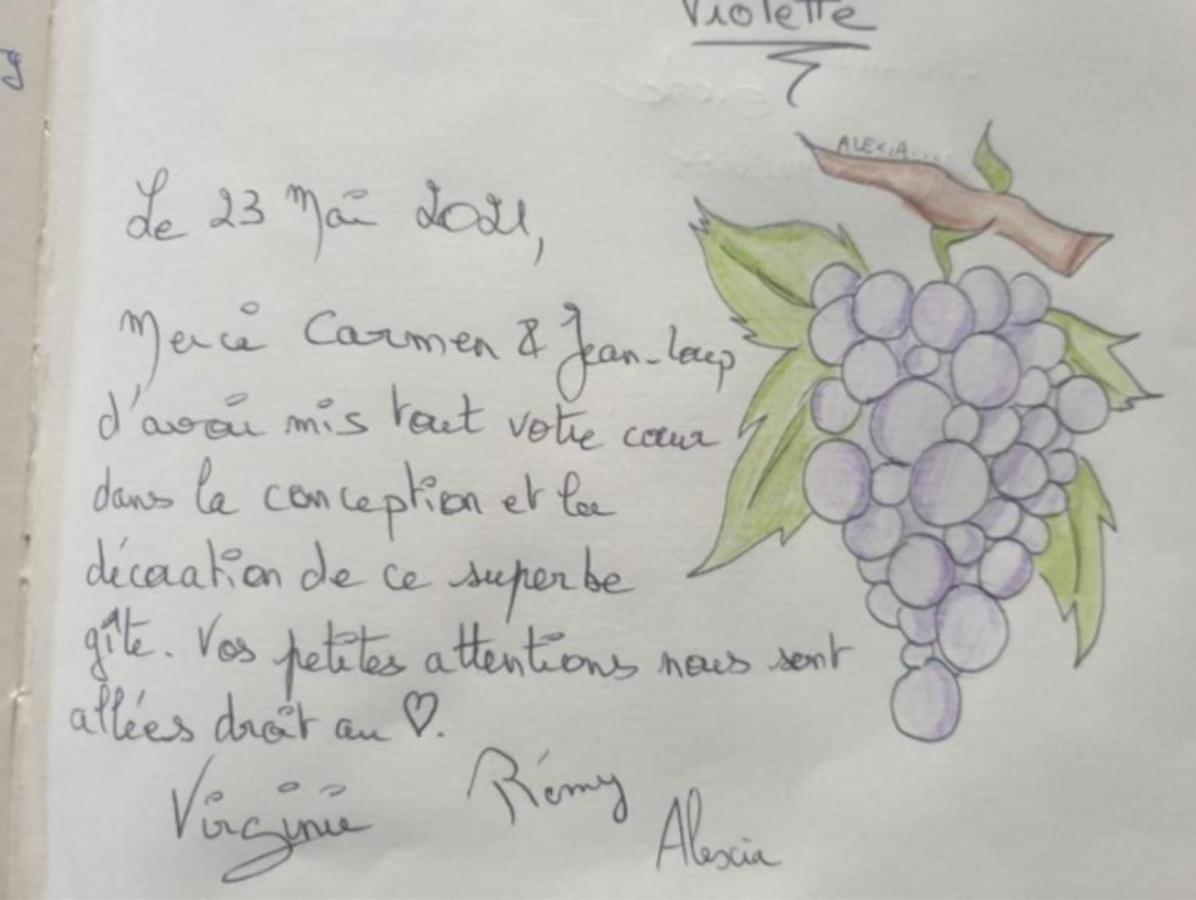 Violette
ALEXIA....
Le 23 Mai 2021,
Merci Carmen & Jean-Loup
d'avoir mis tout votre cœur
dans la conception et la
décoration de ce superbe
gîte. Vos petites attentions nous sont
allées droit au ♡.
Virginie
Rémy
Alexia